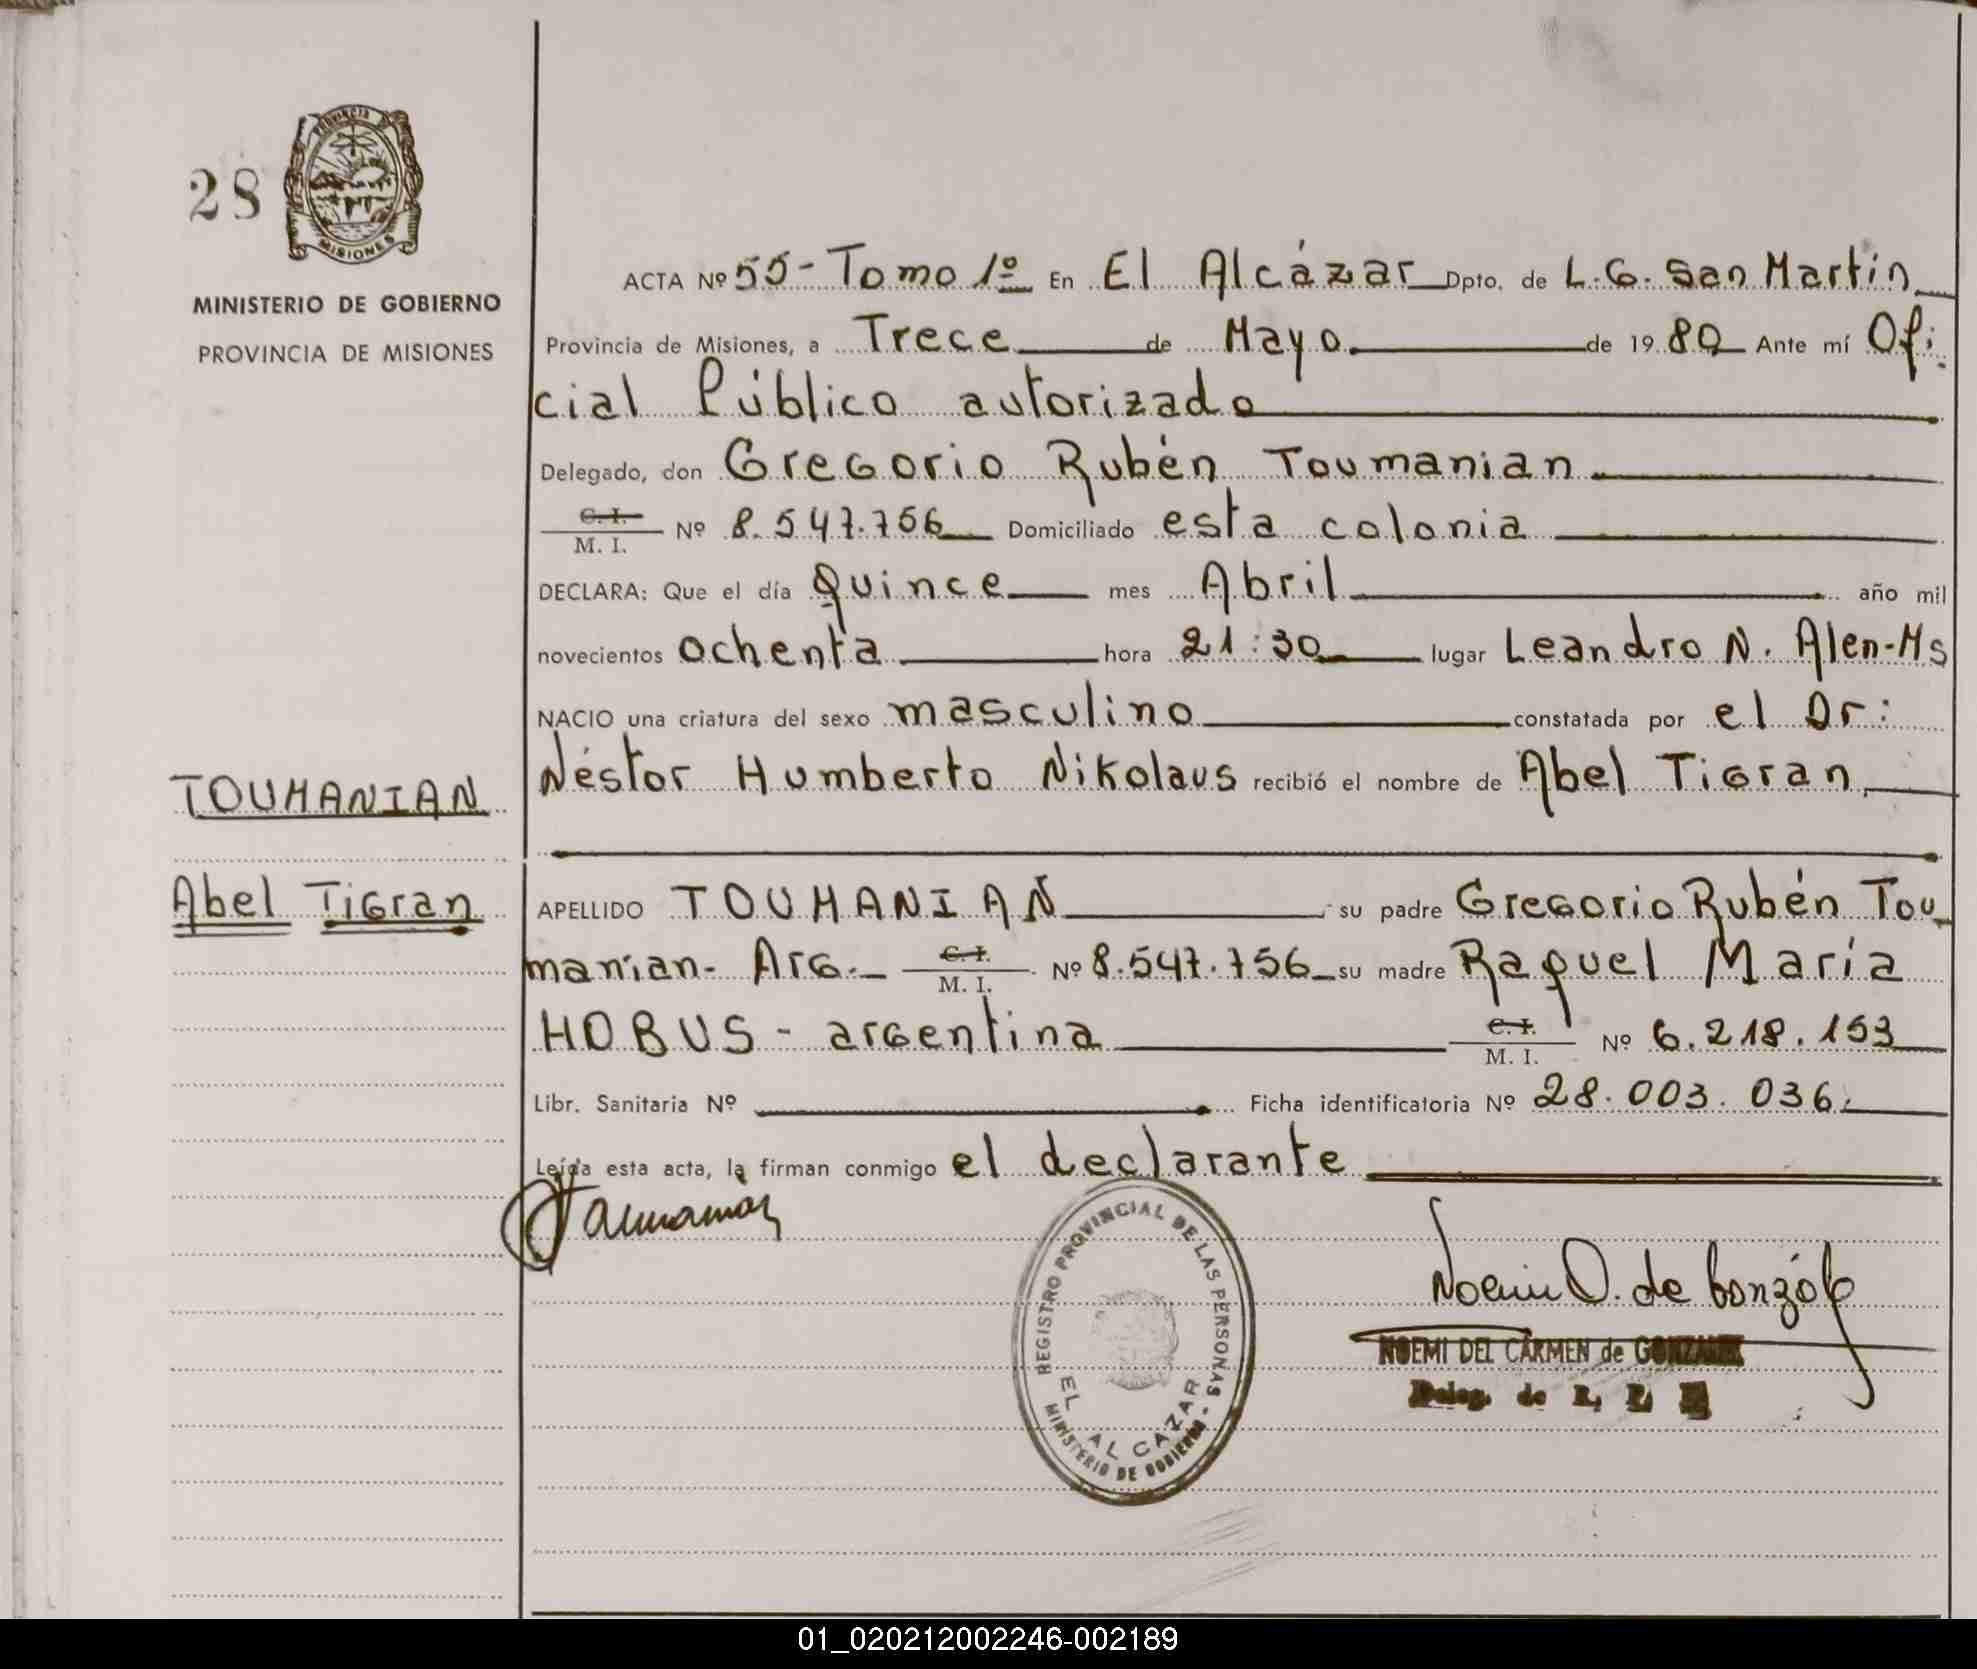 28
PROVINCIA
MISIONES
MINISTERIO DE GOBIERNO
PROVINCIA DE MISIONES
ACTA Nº 55-Tomo 1º En El Alcázar Dpto. de L.G. San Martín
Provincia de Misiones, a Trece de Mayo de 1980 Ante mí Ofi
cial Público autorizado
Delegado, don Gregorio Rubén Toumanian
C. I.
M. I. Nº 8.547.756 Domiciliado esta colonia
DECLARA: Que el día quince mes Abril año mil
novecientos ochenta hora 21:30 lugar Leandro N. Alen-Ms
NACIO una criatura del sexo masculino constatada por el Dr:
Néstor Humberto Nikolaus recibió el nombre de Abel Tigran
TOUMANIAN
Abel Tigran
APELLIDO TOUMANIAN su padre Gregorio Rubén Tou
manian- Arg.- C.I.
M. I. Nº 8.547.756 su madre Raquel María
HOBUS - argentina C.I.
M. I. Nº 6.218.153
Libr. Sanitaria Nº Ficha identificatoria Nº 28.003.036
Leída esta acta, la firman conmigo el declarante
REGISTRO PROVINCIAL DE LAS PERSONAS
EL ALCAZAR
MINISTERIO DE GOBIERNO
Noemi D. de Gonzáles
NOEMI DEL CARMEN de GONZALEZ
Deleg. de R. P.
01_020212002246-002189